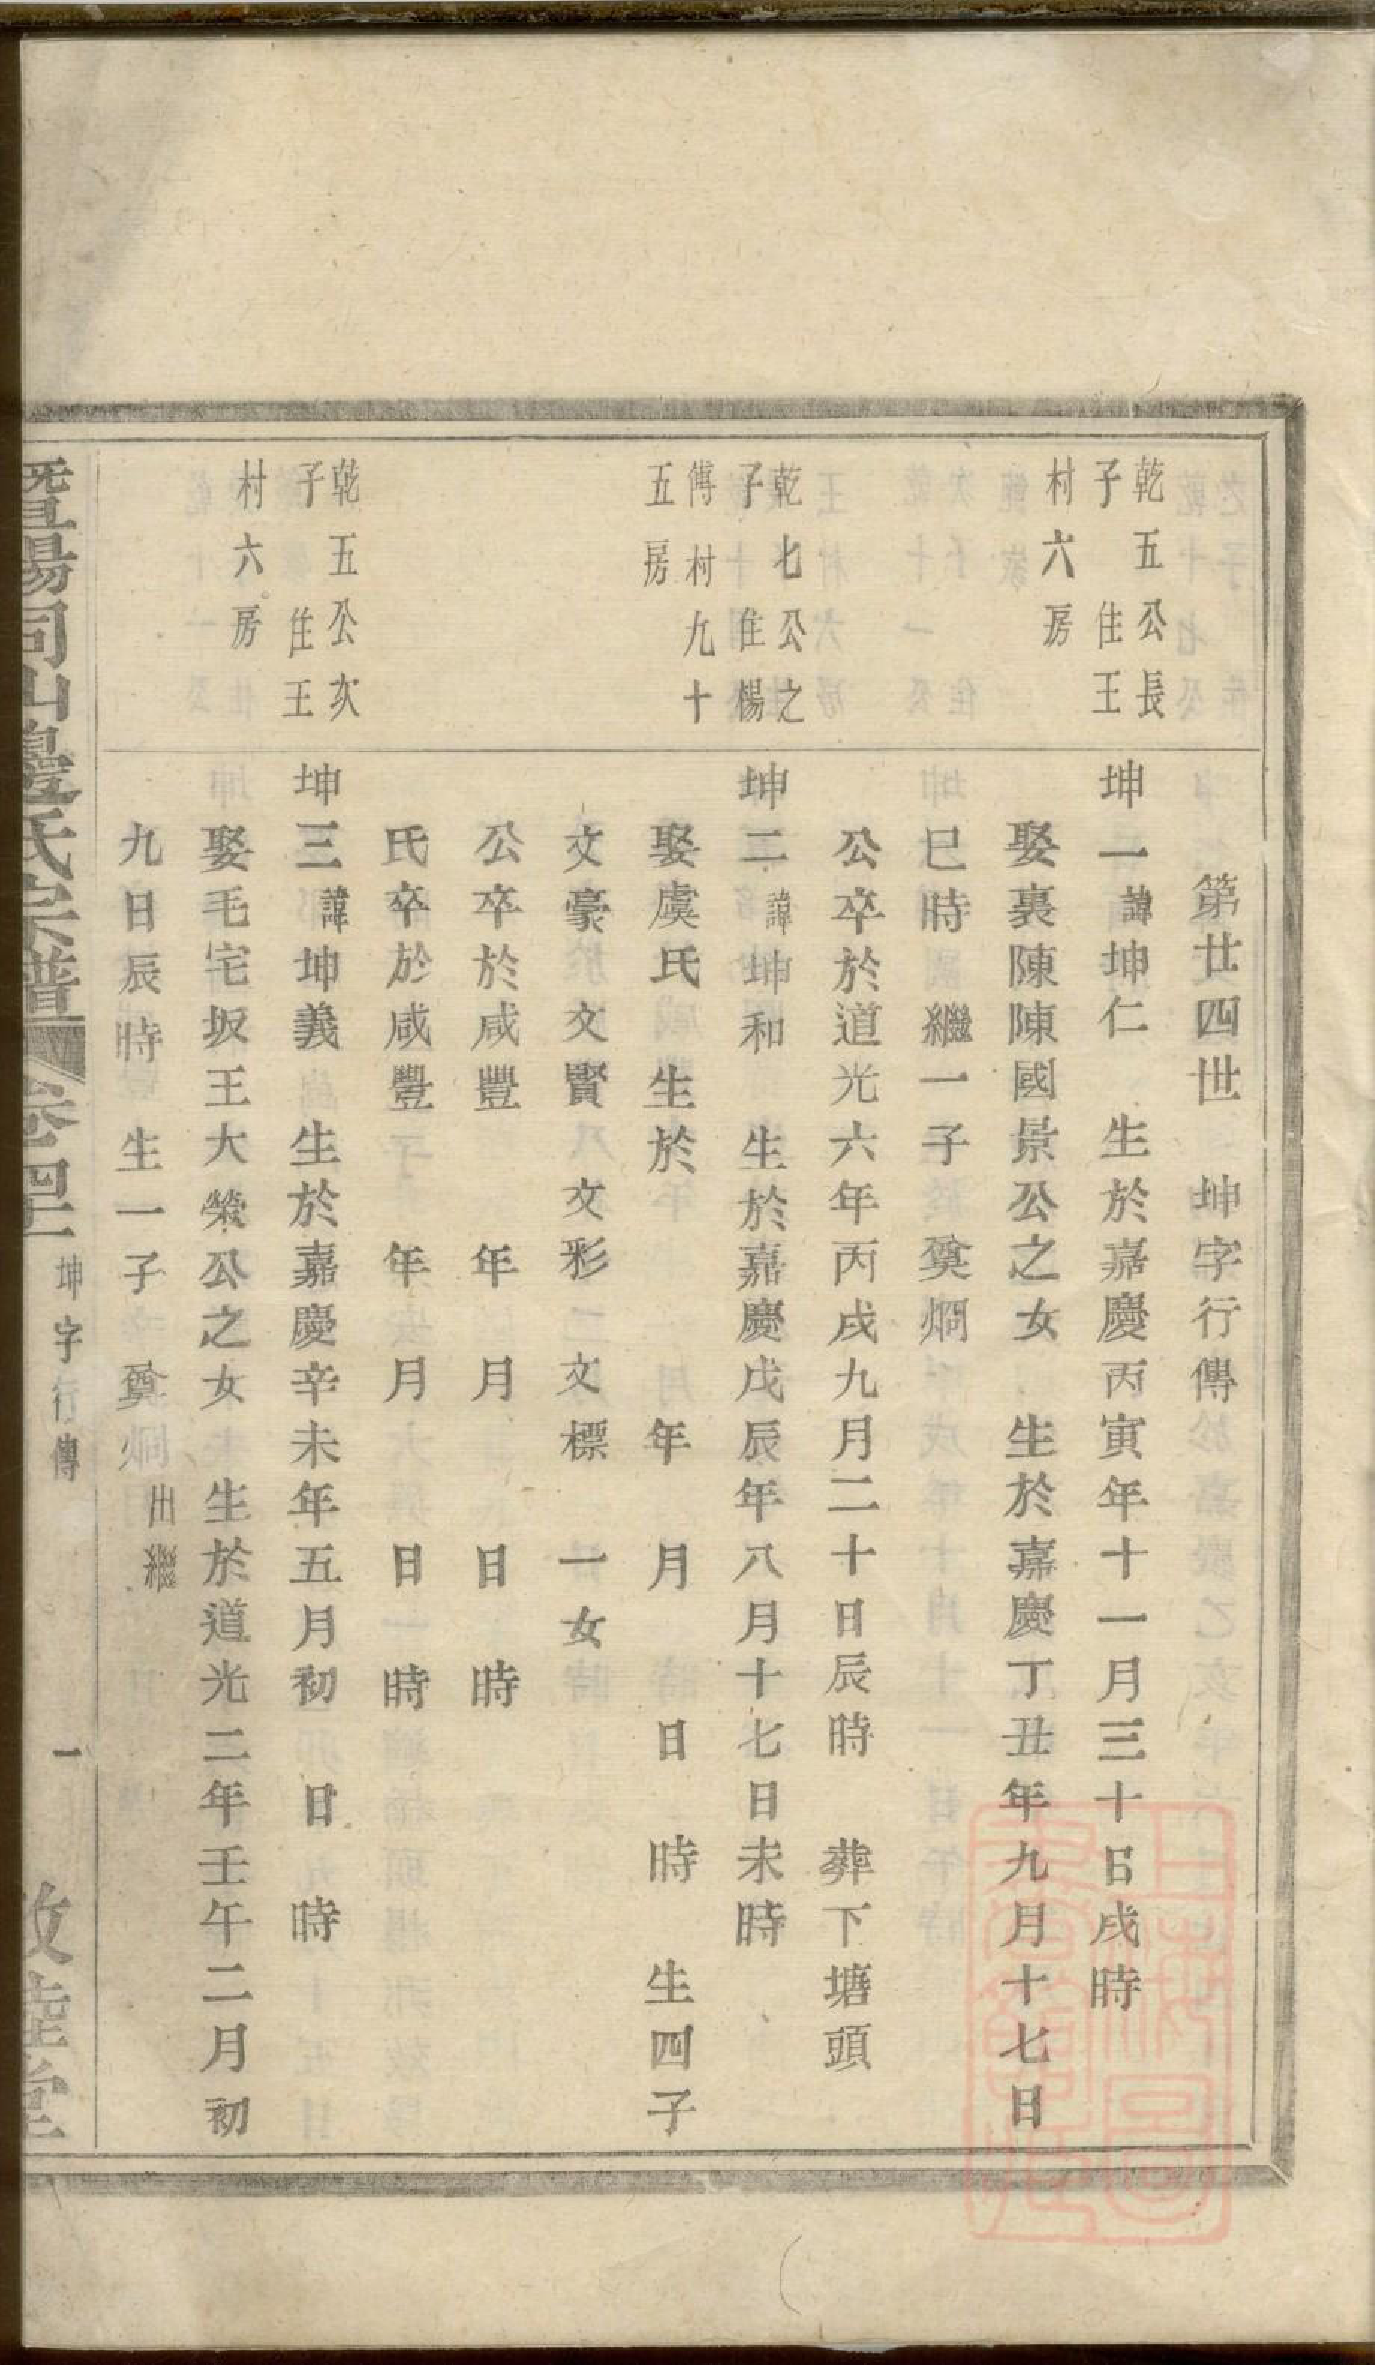 第廿四世　坤字行傳
乾五公長
子　住王
村六房
坤一諱坤仁　生於嘉慶丙寅年十一月三十日戌時
娶裏陳陳國景公之女　生於嘉慶丁丑年九月十七日
巳時　繼一子奠烱
公卒於道光六年丙戌九月二十日辰時　葬下塘頭
乾七公之
子　住楊
傅村九十
五房
坤二諱坤和　生於嘉慶戊辰年八月十七日未時
娶虞氏　生於　年　月　日　時　生四子
文豪　文賢　文彩　文標　一女
公卒於咸豐　年　月　日　時
氏卒於咸豐　年　月　日　時
乾五公次
子　住王
村六房
坤三諱坤義　生於嘉慶辛未年五月初　日　時
娶毛宅坂王大榮公之女　生於道光二年壬午二月初
九日辰時　生一子奠烱出繼
暨陽同山邊氏宗譜　卷四十二　坤字行傳　一　敦睦堂
上海圖書館藏